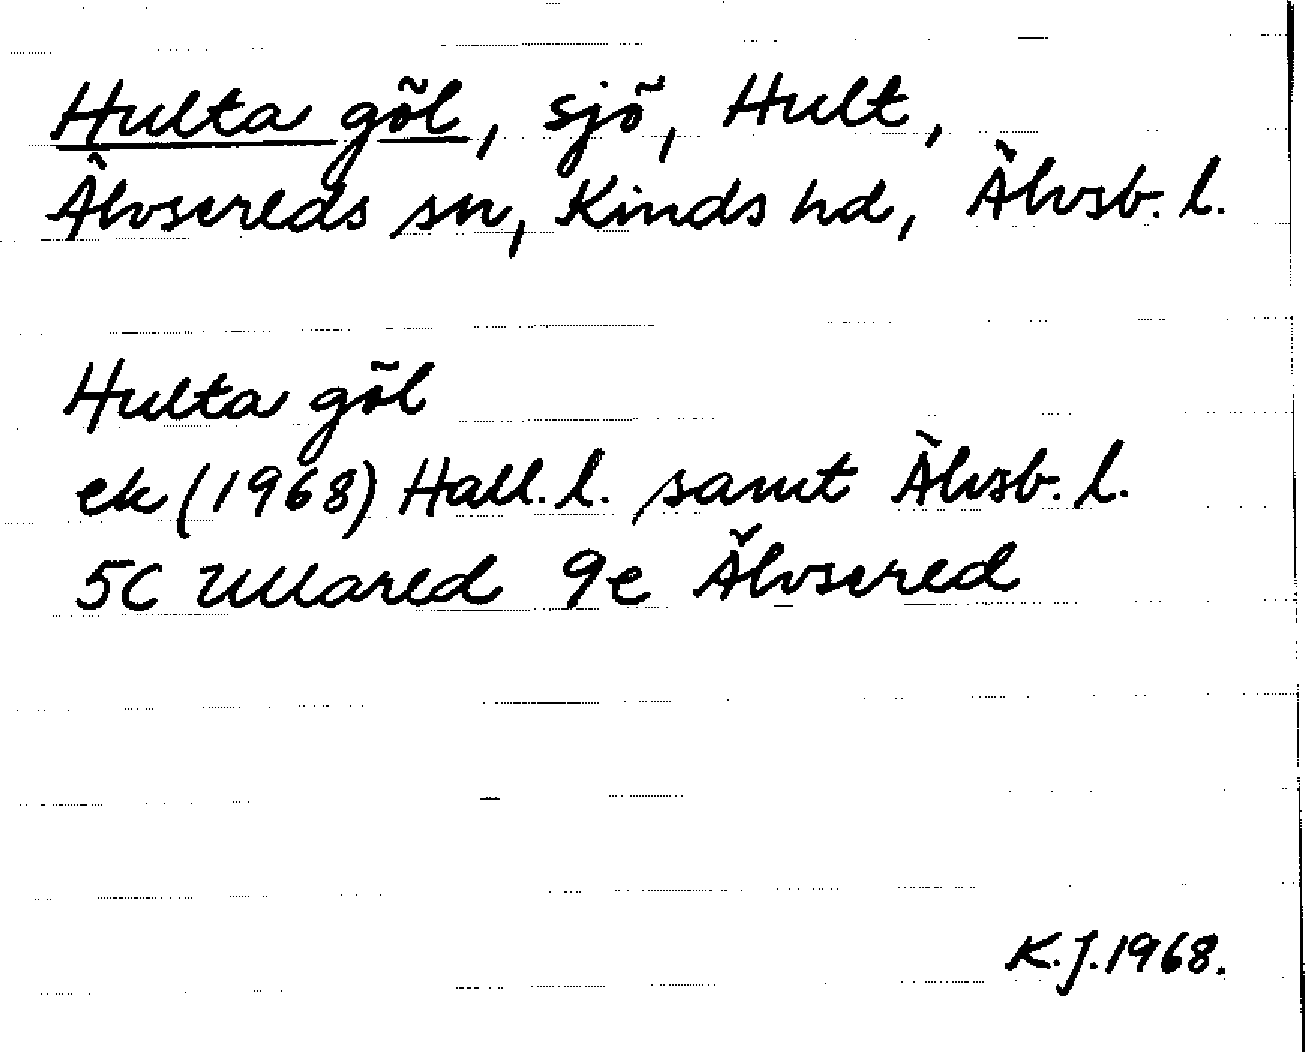 Hulta göl, sjö, Hult,
Älvsereds sn, Kinds hd, Älvsb. l.
Hulta göl
ek (1968) Hall. l. samt Älvsb. l.
5C Ullared 9e Älvsered
K.J. 1968.